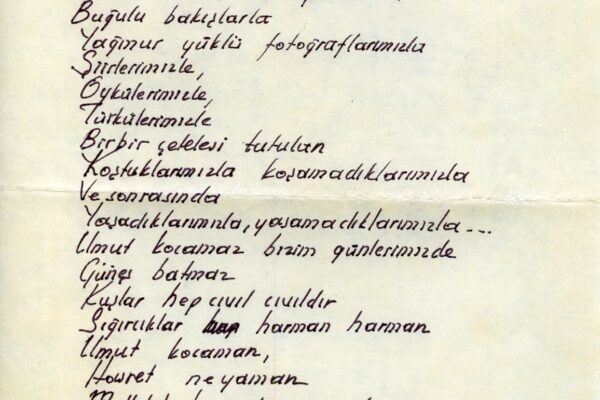 Buğulu bakışlarla
Yağmur yüklü fotoğraflarımızla
Şiirlerimizle,
Öykülerimizle,
Türkülerimizle
Birbir çetelesi tutulan
Koştuklarımızla koşamadıklarımızla
Ve sonrasında
Yaşadıklarımızla, yaşamadıklarımızla...
Umut kocamaz bizim günlerimizde
Güneş batmaz
Kuşlar hep cıvıl cıvıldır
Sığırcıklar harman harman
Umut kocaman,
Hasret ne yaman